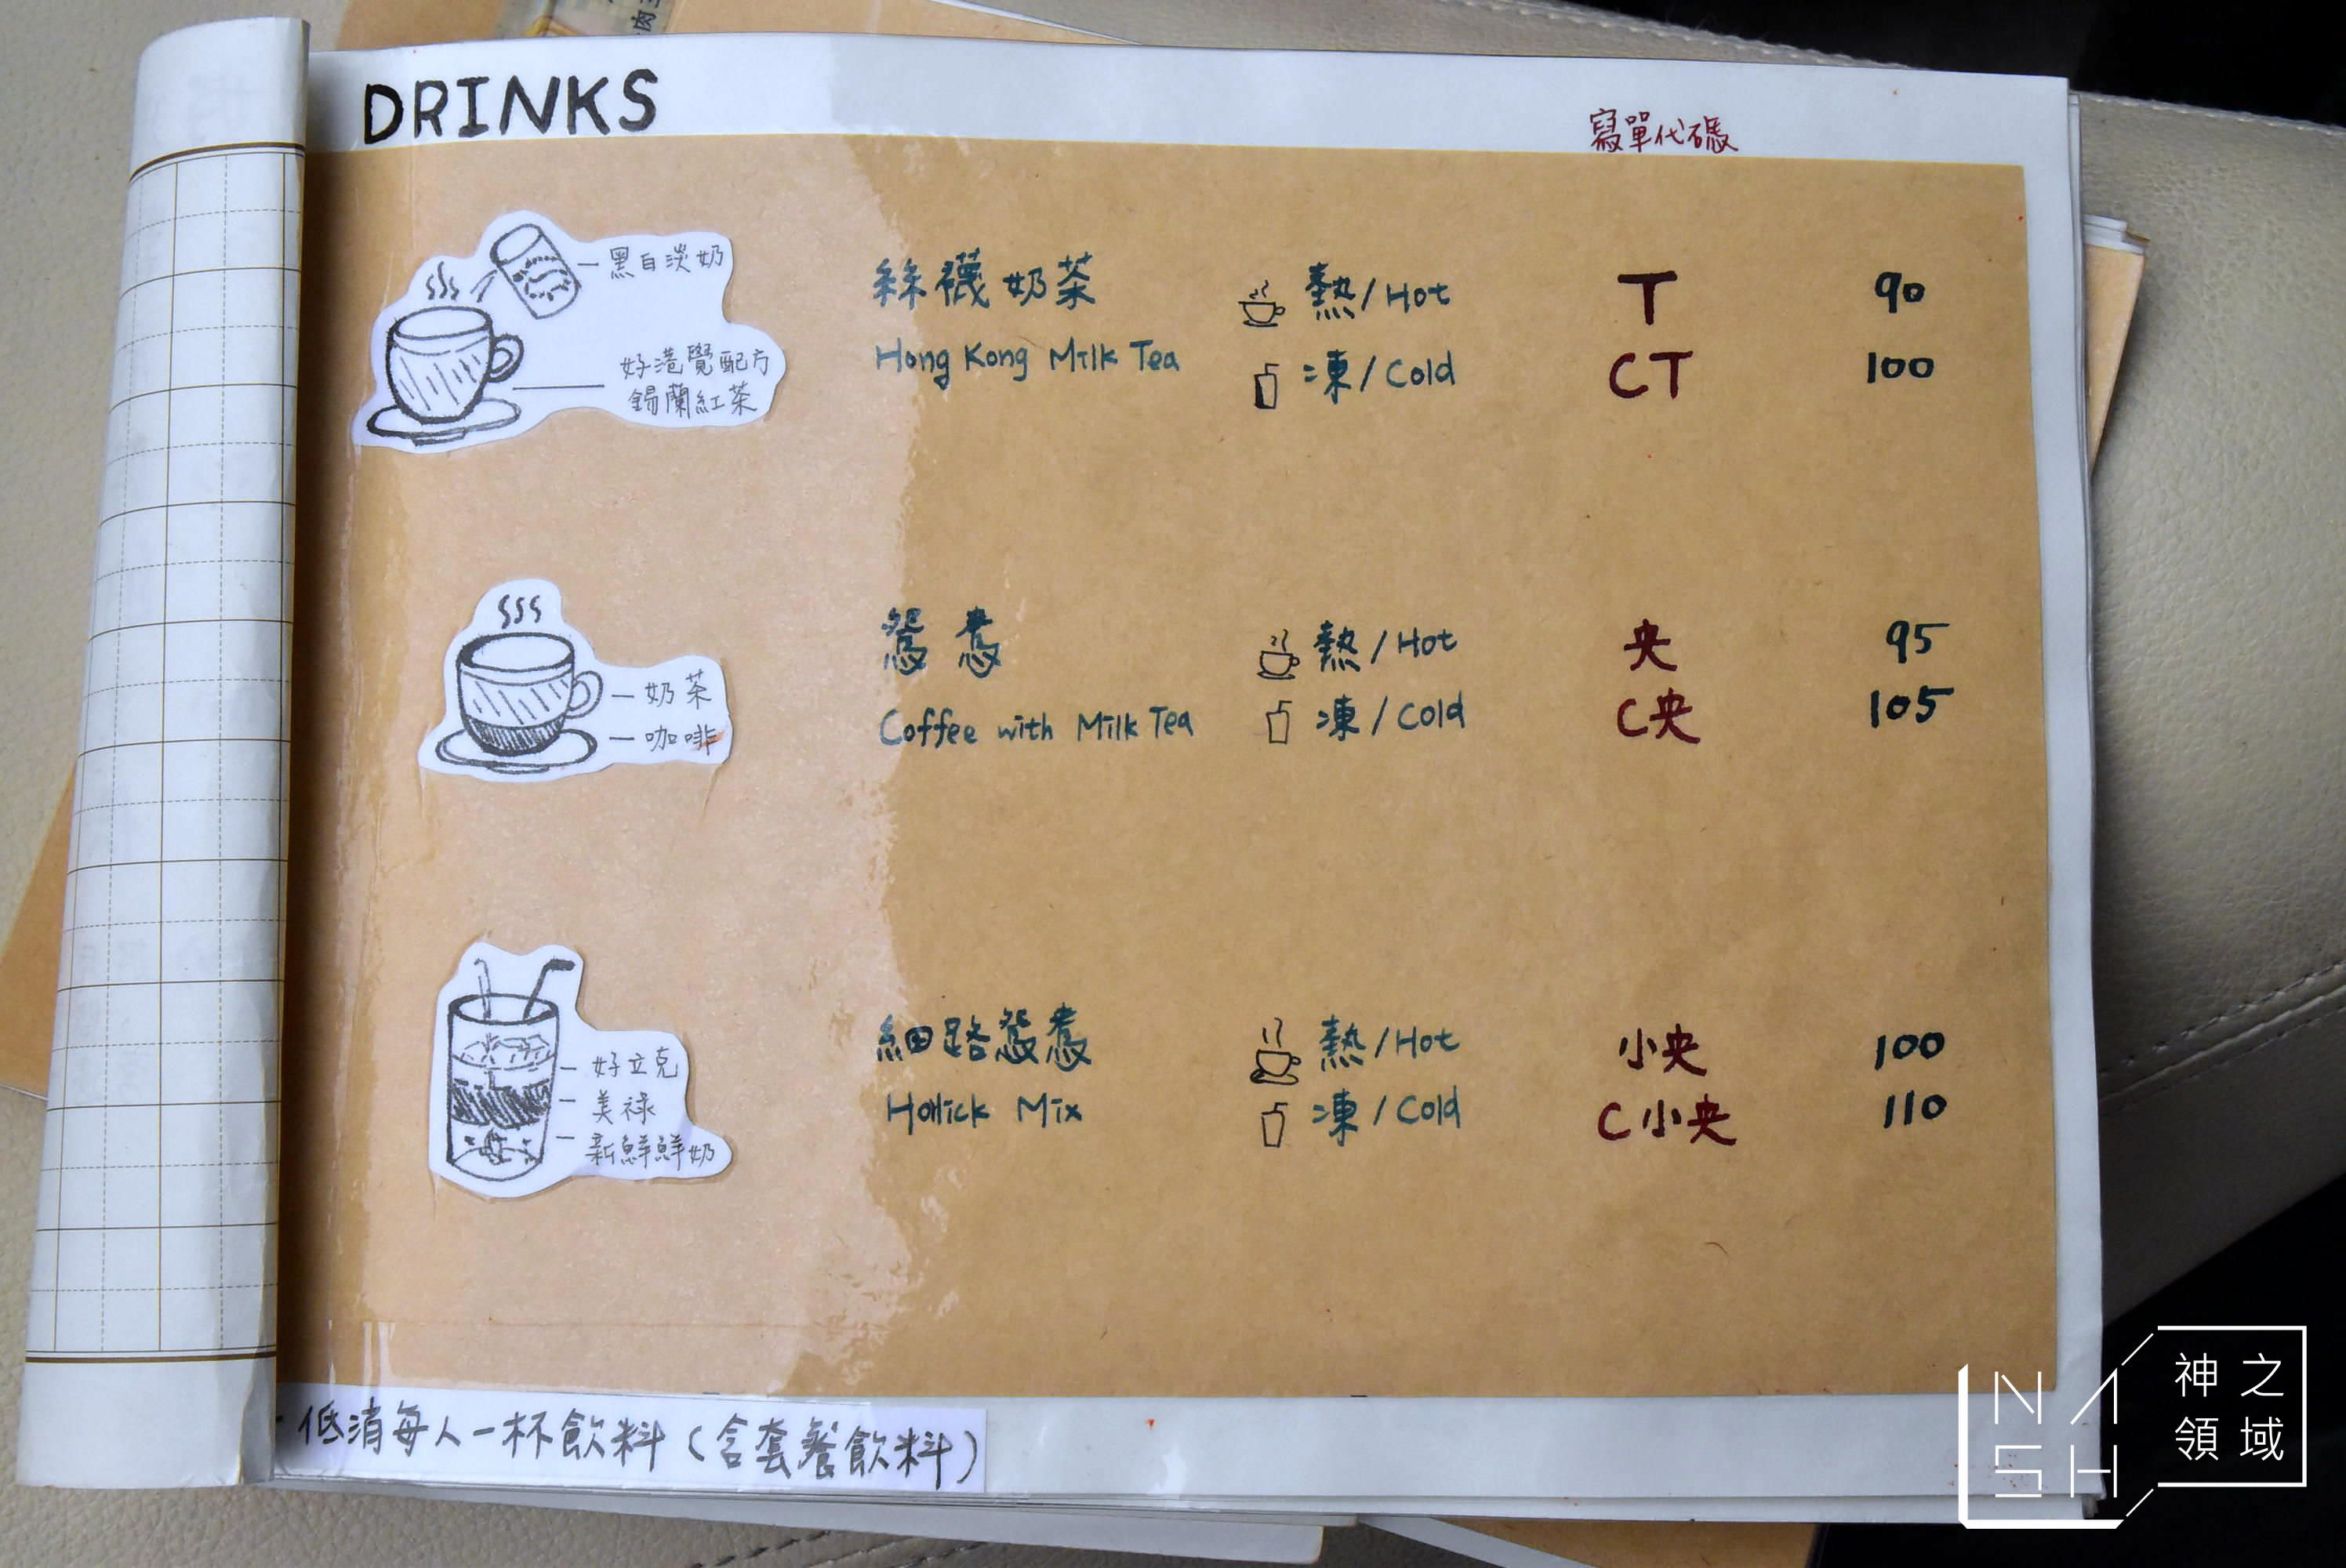 DRINKS
寫單代碼
黑白淡奶
好港覺配方
錫蘭紅茶
絲襪奶茶 熱/Hot T 90
Hong Kong Milk Tea 凍/Cold CT 100
奶茶
咖啡
鴛鴦 熱/Hot 央 95
Coffee with Milk Tea 凍/Cold C央 105
好立克
美祿
新鮮鮮奶
細路鴛鴦 熱/Hot 小央 100
Horlick Mix 凍/Cold C小央 110
低消每人一杯飲料(含套餐飲料)
NASH
神之
領域